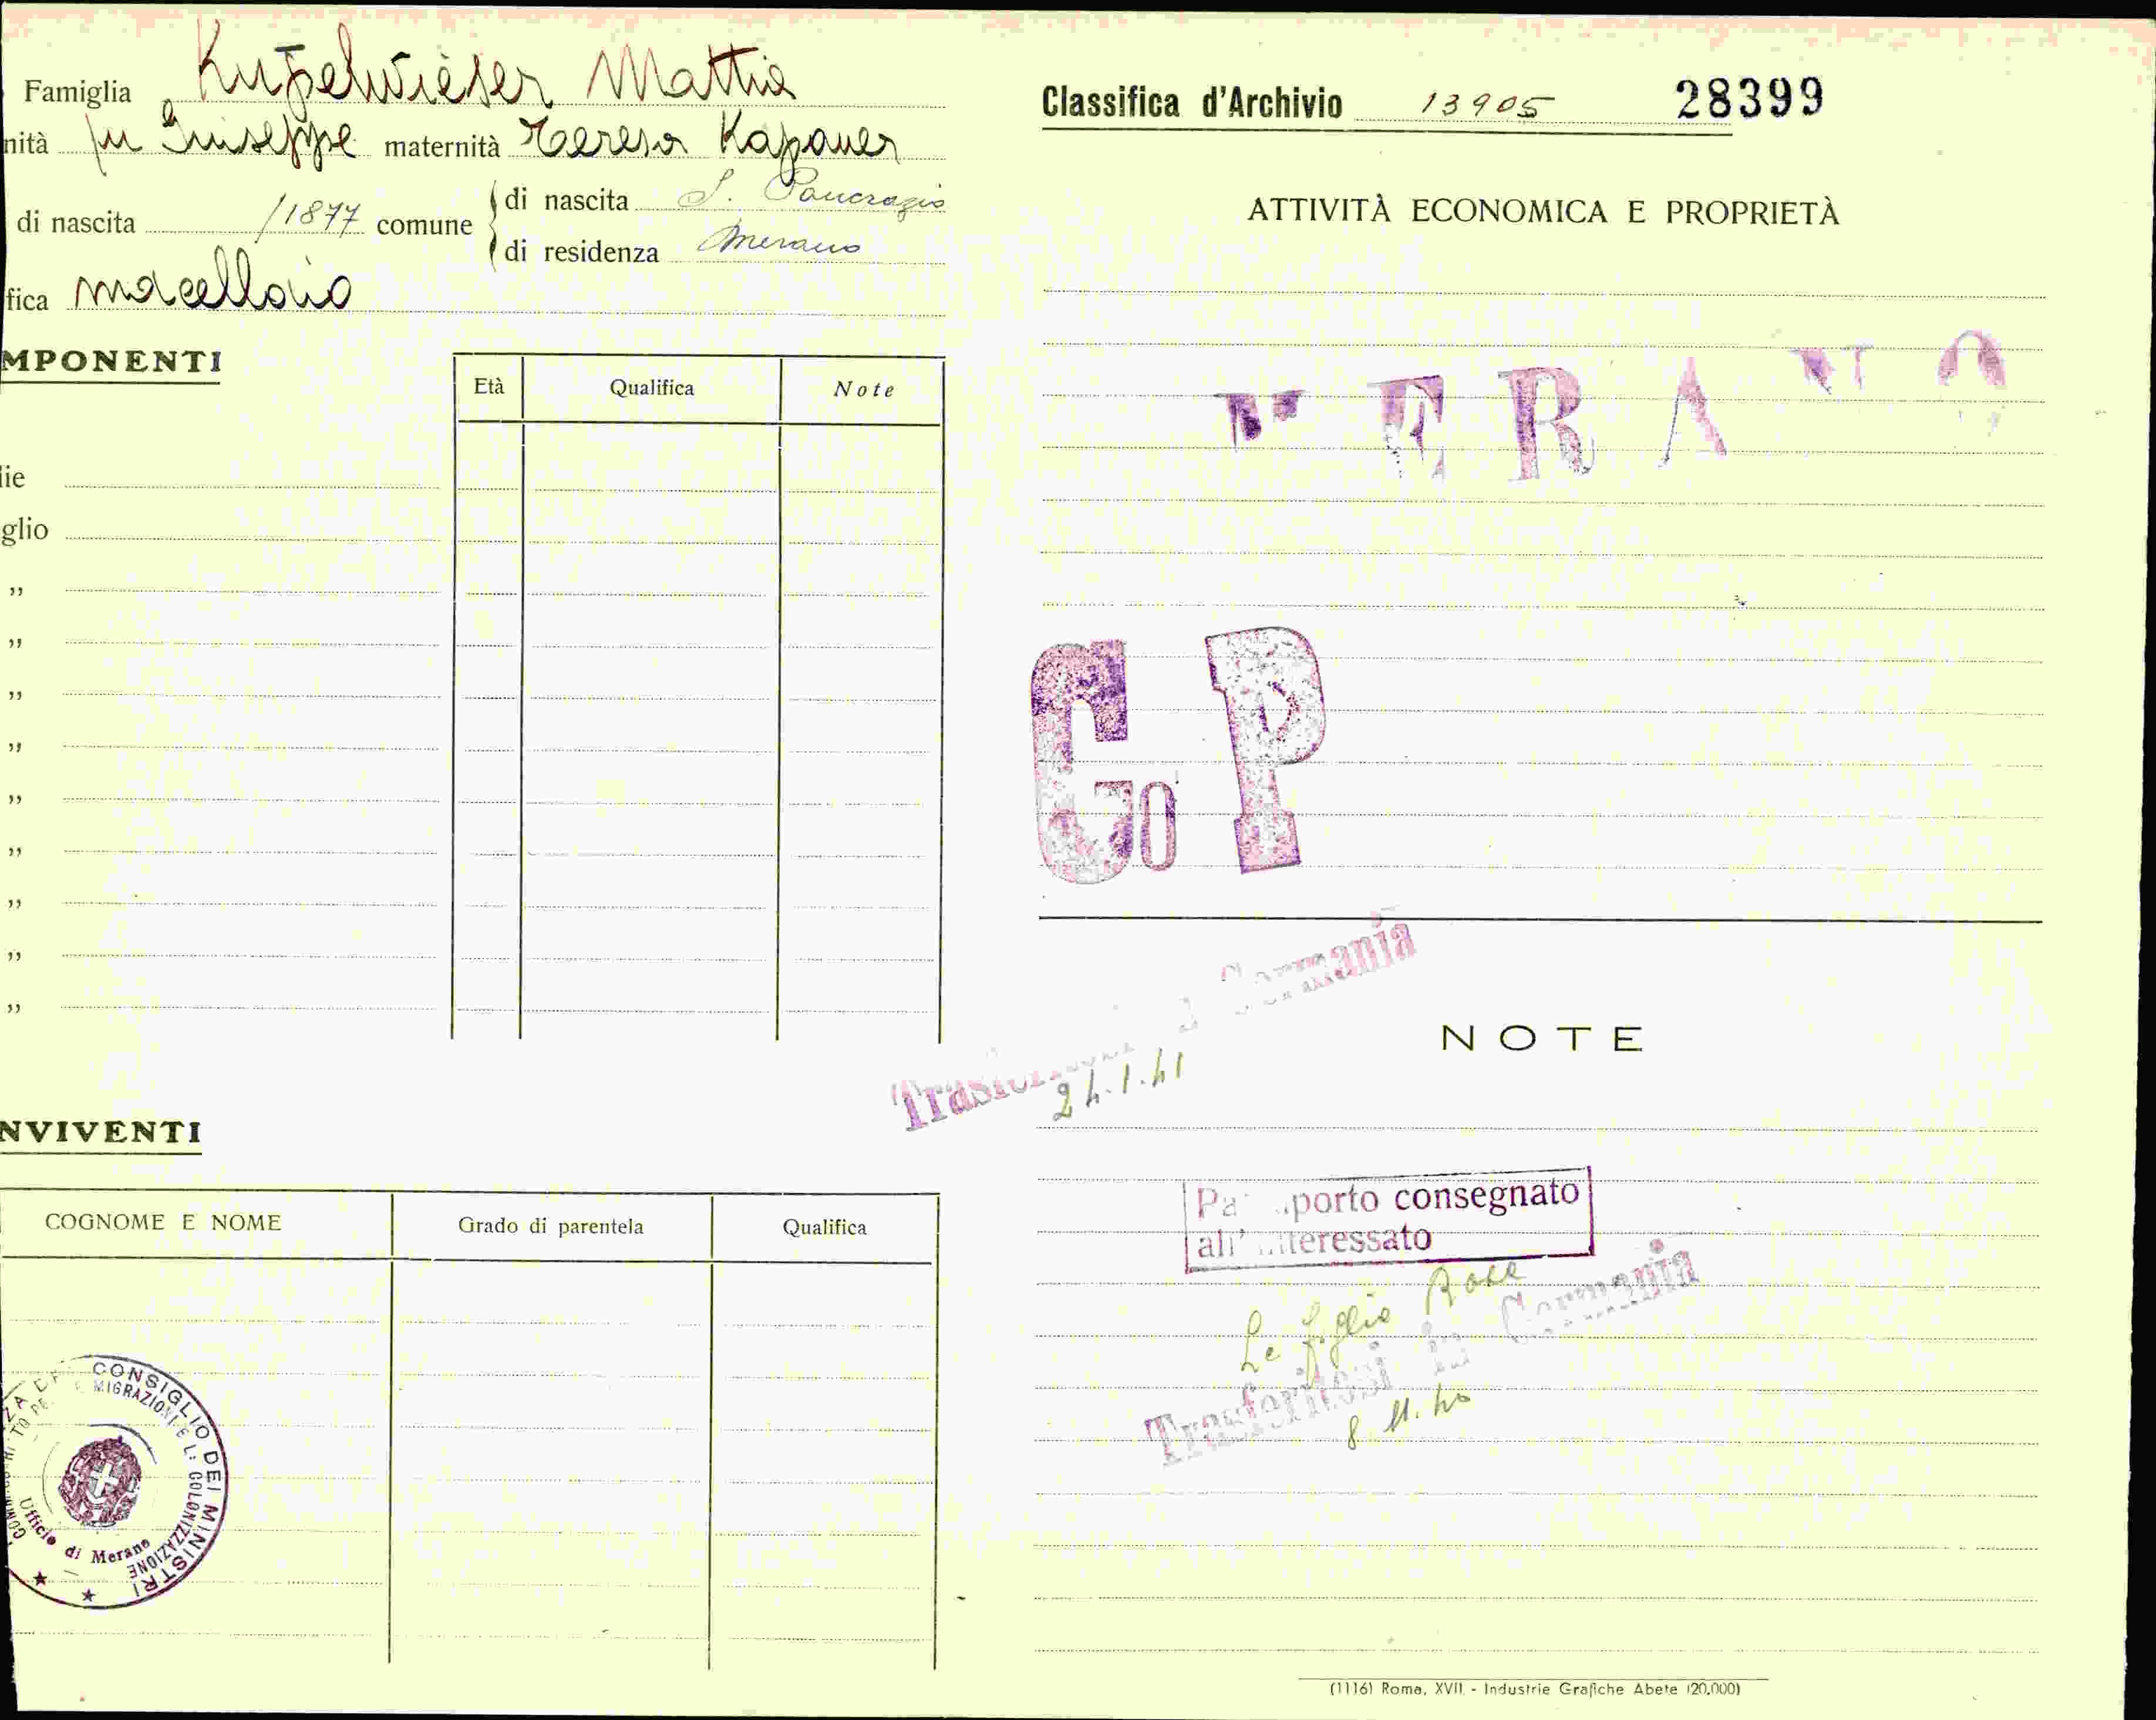 Famiglia Kupelwieser Mattia
nità fu Giuseppe maternità Teresa Kapaurer
di nascita /1877 comune di nascita S. Pancrazio
di residenza Merano
fica macellaio
MPONENTI
Età Qualifica Note
lie
glio
"
"
"
"
"
"
"
"
"
NVIVENTI
COGNOME E NOME Grado di parentela Qualifica
CONSIGLIO DEI MINISTRI
MIGRAZIONE COLONIZZAZIONE
Ufficio di Merano
Classifica d'Archivio 13905 28399
ATTIVITÀ ECONOMICA E PROPRIETÀ
MERANO
Go P
Germania
24.1.41
NOTE
consegnato
all'interessato
La figlia Rosa
Trasferitosi in Germania
8.11.40
(1116) Roma, XVII. - Industrie Grafiche Abete (20.000)